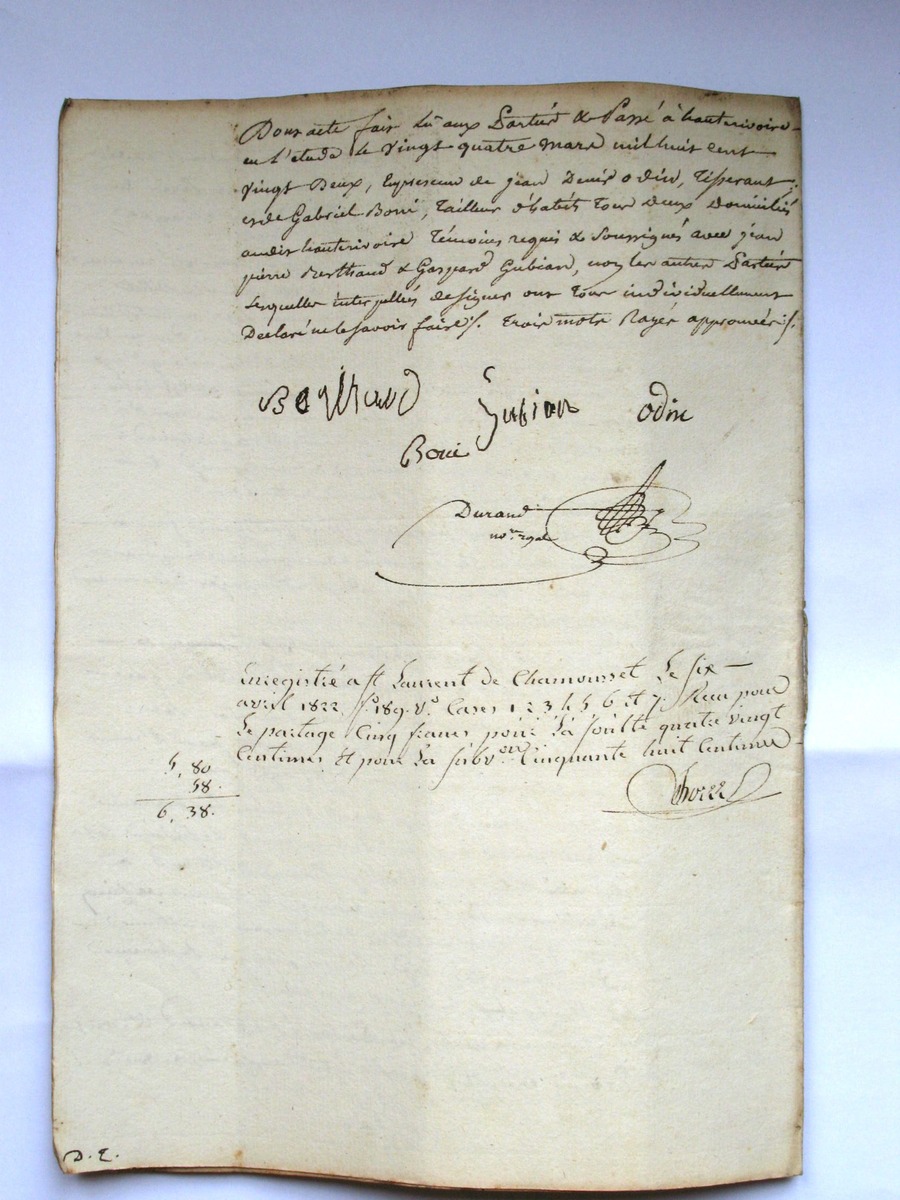 Dont acte fait lû aux Parties & Passé à hauterivoire
en l'étude le vingt quatre mars mil huit cent
vingt Deux, En presence de jean Denis odin, Tisserant,
et de Gabriel Boni, Tailleur d'habits Tous Deux Domiciliés
audit hauterivoire Témoins requis & Soussignés avec jean
pierre Berthaud & Gaspard Gubian, non les autres Parties
Lesquelles interpellées de signer ont Tous individuellement
Déclaré ne le savoir faire ./. Trois mots Rayés approuvés ./.
Gubian odin
Boni
Durand
Enregistré a st Laurent de Chamousset Le six
avril 1822 fo. 189. vo. Cases 1 2 3 4 5 6 et 7. Recu pour
Le partage Cinq francs pour La soulte quatre vingt
Centimes Et pour La Cinquante huit Centimes
5, 80
58.
6, 38.
D. E.